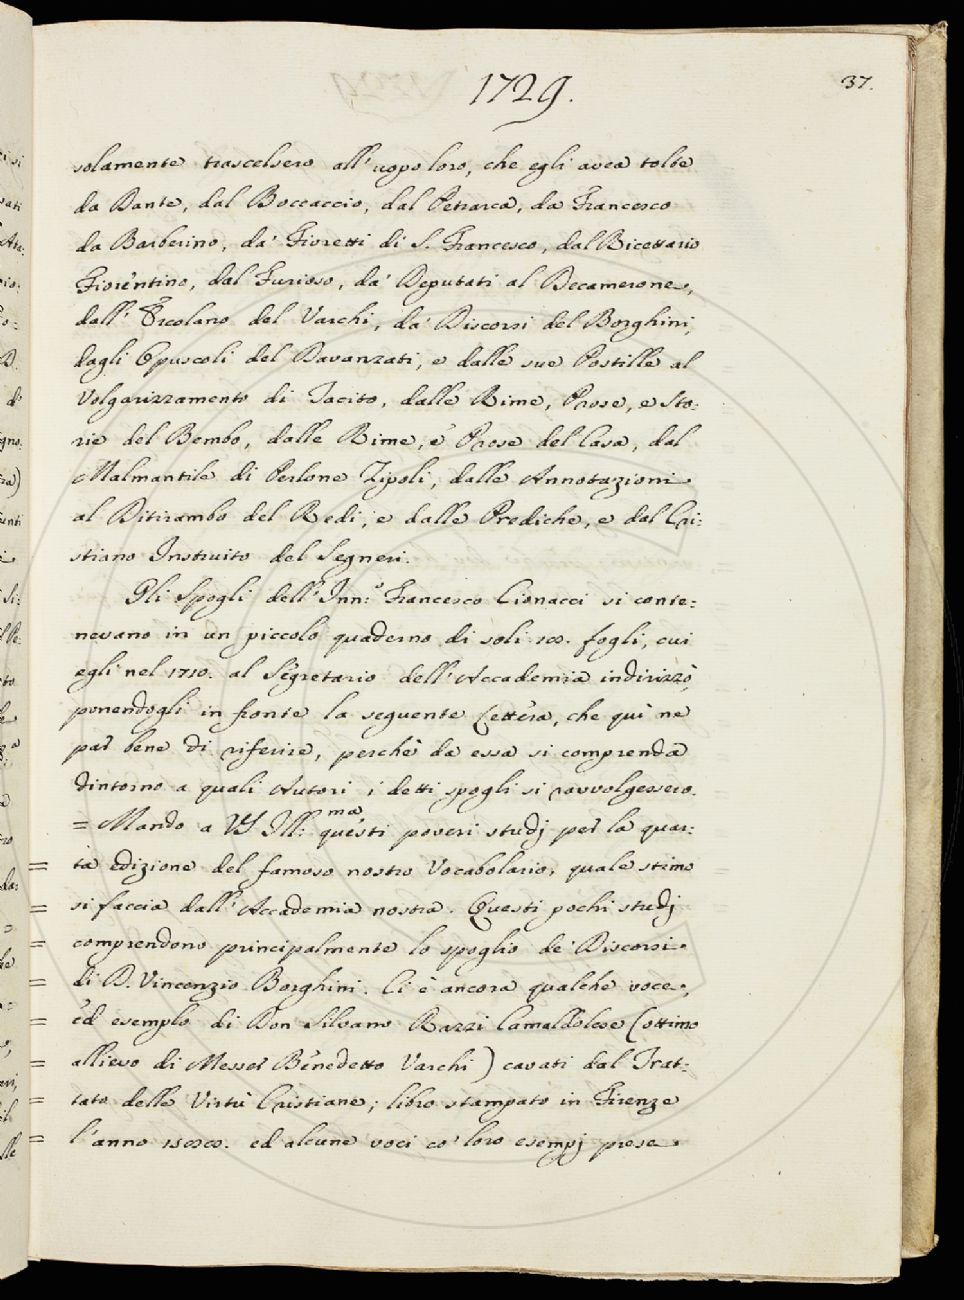 1729.
37.
solamente trascelsero all' uopo loro, che egli avea tolte
da Dante, dal Boccaccio, dal Petrarca, da Francesco
da Barberino, da' Fioretti di S. Francesco, dal Ricettario
Fiorentino, dal Furioso, da' Deputati al Decamerone,
dall' Ercolano del Varchi, da' Discorsi del Borghini,
dagli Opuscoli del Davanzati, e dalle sue Postille al
Volgarizzamento di Tacito, dalle Rime, Prose, e Sto:
rie del Bembo, dalle Rime, e Prose del Casa, dal
Malmantile di Perlone Zipoli, dalle Annotazioni
al Ditirambo del Redi, e dalle Prediche, e dal Cri:
stiano Instruito del Segneri.
Gli Spogli dell' Inn:º Francesco Cionacci si conte:
nevano in un piccolo quaderno di soli 100. fogli, cui
egli nel 1710. al Segretario dell' Accademia indirizzò,
ponendogli in fronte la seguente Lettera, che quì ne
par bene di riferire, perchè da essa si comprenda
dintorno a quali Autori i detti spogli si ravvolgessero.
= Mando a VS Ill:ma questi poveri studj per la quar:
= ta edizione del famoso nostro Vocabolario, quale stimo
= si faccia dall' Accademia nostra. Questi pochi studj
= comprendono principalmente lo spoglio de' Discorsi
= di D. Vincenzio Borghini. Ci è ancora qualche voce,
= ed esemplo di Don Silvano Razzi Camaldolese (ottimo
= allievo di Messer Benedetto Varchi) cavati dal Trat:
= tato delle Virtù Cristiane; libro stampato in Firenze
= l'anno ed alcune voci co' loro esempj prese